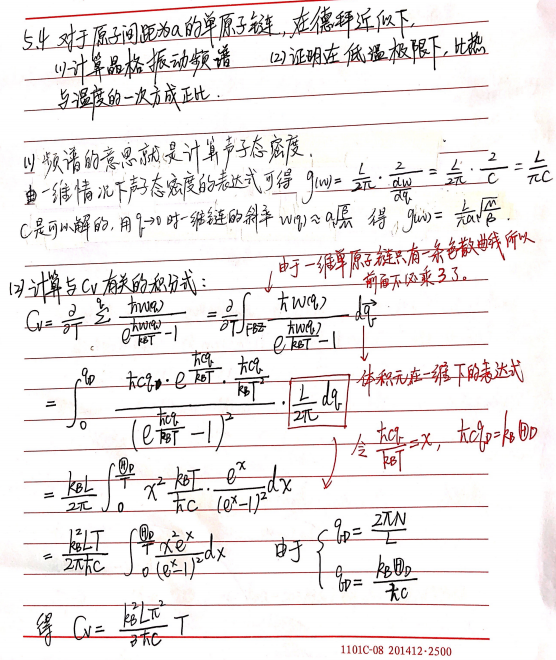 5.4 对于原子间距为a的单原子链,在德拜近似下,
(1)计算晶格振动频谱 (2)证明在低温极限下,比热
与温度的一次方成正比.
(1) 频谱的意思就是计算声子态密度.
由一维情况下声子态密度的表达式可得 g(w) = L/2π · 2/(dw/dq) = L/2π · 2/C = L/πC
C是可以解的. 用q→0时一维链的斜率 w(q) ≈ a√(β/m) 得 g(w) = L/πa √(m/β).
(2)计算与Cv有关的积分式:
由于一维单原子链只有一条色散曲线所以
前面不必乘3了。
Cv = ∂/∂T Σ_q ħw(q)/(e^(ħw(q)/kBT) - 1) = ∂/∂T ∫_FBZ ħw(q)/(e^(ħw(q)/kBT) - 1) dq⃗
体积元在一维下的表达式
= ∫_0^qD ħcq · e^(ħcq/kBT) · ħcq/kBT² / (e^(ħcq/kBT) - 1)² · L/2π dq
令 ħcq/kBT = x, ħcqD = kBΘD
= kBL/2π ∫_0^(ΘD/T) x² kBT/ħc · e^x/(e^x-1)² dx
= kB²LT/2πħc ∫_0^(ΘD/T) x²e^x/(e^x-1)² dx 由于 { qD = 2πN/L
qD = kBΘD/ħc
得 Cv = kB²Lπ²/3ħc T
1101C-08 201412·2500